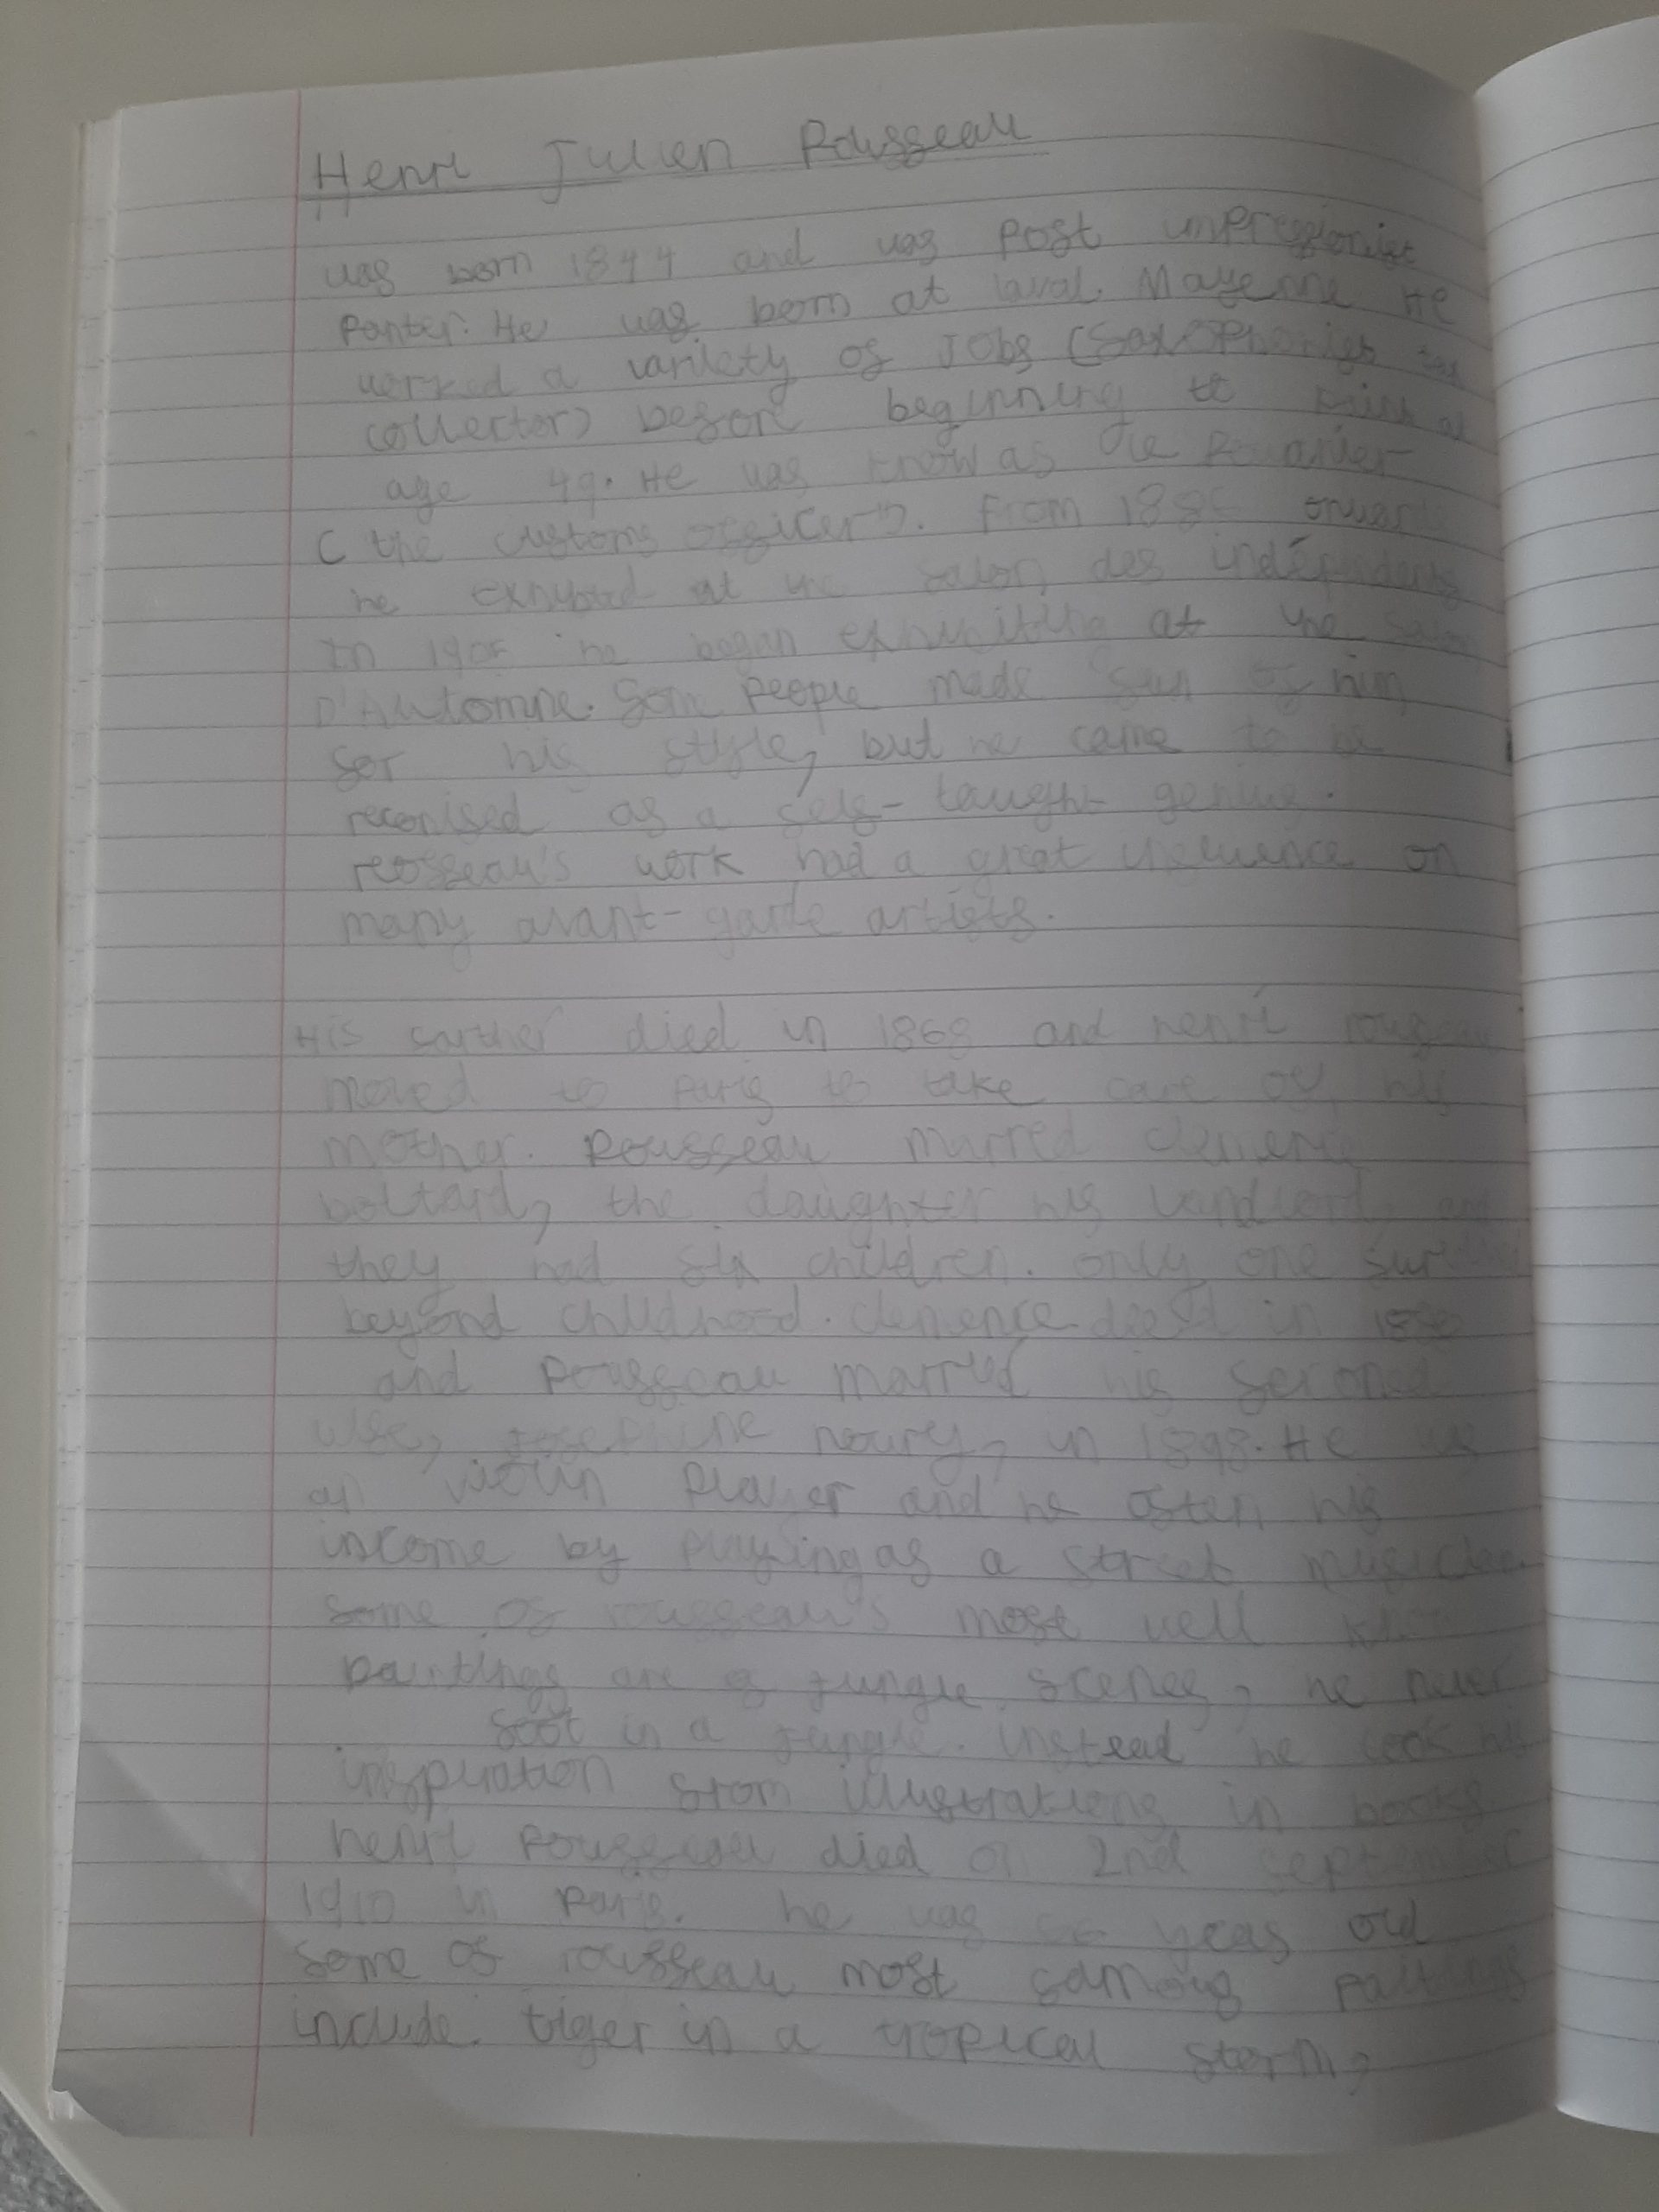 Henri Julien Rousseau
was born 1844 and was Post impressionist
Panter. He was born at laval. Mayenne He
worked a varilety of Jobs (Sax
collector) before beginning to at
age 49. He was know as the
( the customs officer"). From onwar
he at the salon des indépendents
In 1905 he began at the salon
D'Automne. Some People made fun of him
for his style, but he came to be
reconised as a self-taught genius.
reosseau's work had a great influence on
many avant-garde artists.
His father died in 1868 and henri rousseau
moved to Paris to take care of his
mother. Rousseau marred clemence
boitard, the daughter his landlord,
they had six children. only one
beyond childhood. clemence died in
and Rousseau married his second
wife, josephine noury, in 1898. He was
an violin Player and he often his
income by playing as a street
some of rousseau's most well
paintings are of jungle scenes, he never
foot in a jungle. instead he took his
inspiration from illustrations in books
henri died on 2nd september
1910 in Paris. he was years old
some of rousseau most
include. tiger in a tropical storm,